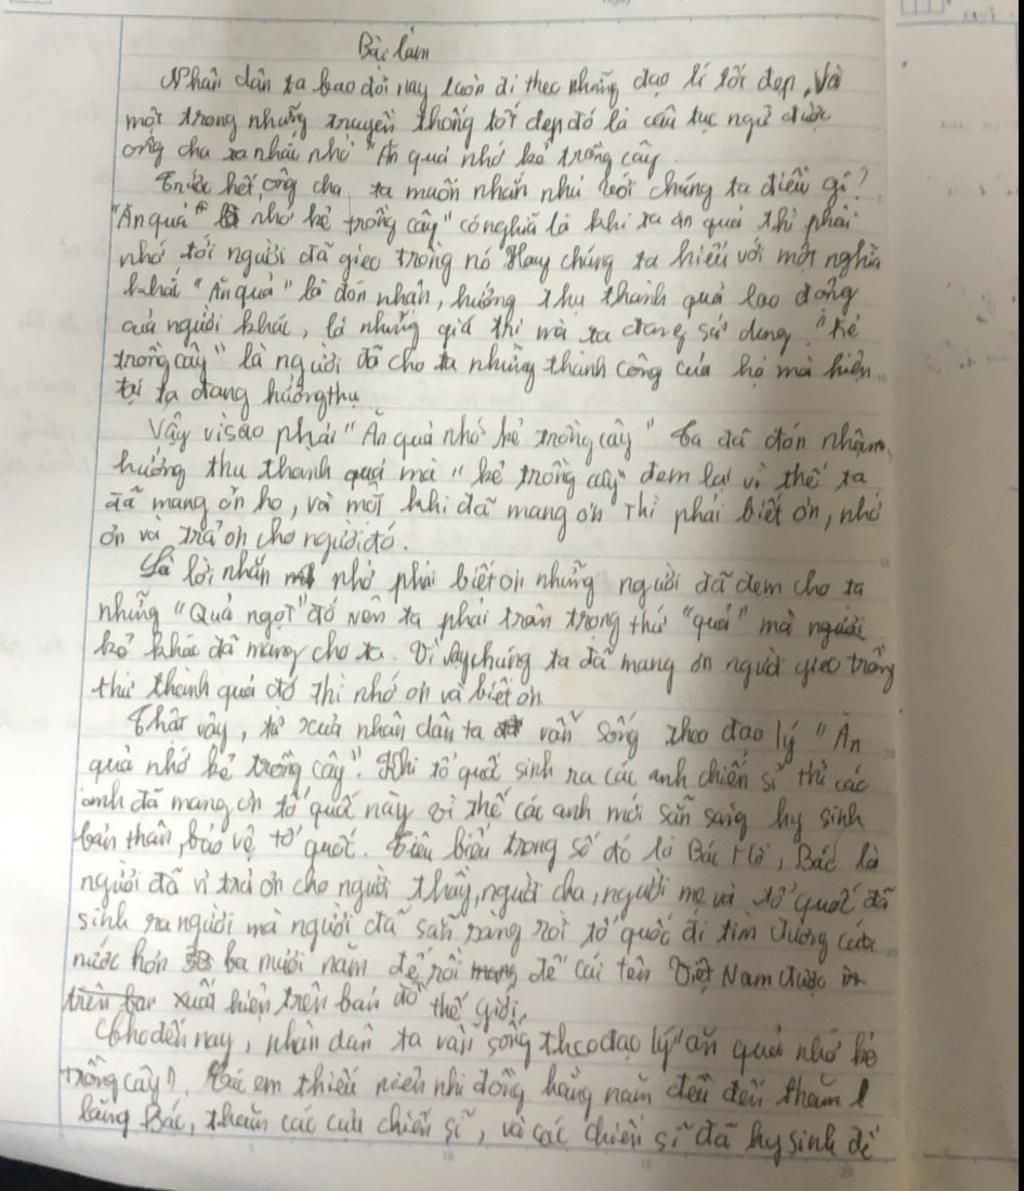 Bài làm
Nhân dân ta bao đời nay luôn đi theo những đạo lí tốt đẹp, Và
một trong những truyền thống tốt đẹp đó là câu tục ngữ được
ông cha ta nhắc nhở "Ăn quả nhớ kẻ trồng cây
Trước hết, ông cha ta muốn nhắn nhủ với chúng ta điều gì?
"Ăn quả nhớ kẻ trồng cây" có nghĩa là khi ta ăn quả thì phải
nhớ tới người đã gieo trồng nó Hay chúng ta hiểu với một nghĩa
khác "Ăn quả" là đón nhận, hưởng thụ thành quả lao động
của người khác, là những giá thị mà ta đang sử dụng. "Kẻ
trồng cây" là người đã cho ta những thành công của họ mà hiện
tại ta đang hưởng thụ
Vậy vì sao phải "Ăn quả nhớ kẻ trồng cây" Ta đã đón nhận,
hưởng thụ thành quả mà "kẻ trồng cây" đem lại vì thế ta
đã mang ơn họ, và mỗi khi đã mang ơn thì phải biết ơn, nhớ
ơn và trả ơn cho người đó.
Là lời nhắn nhở phải biết ơn những người đã đem cho ta
những "Quả ngọt" đó nên ta phải trân trọng thứ "quả" mà người
kẻ khác đã mang cho ta. Vì vậy chúng ta đã mang ơn người gieo trồng
thứ thành quả đó thì nhớ ơn và biết ơn
Thật vậy, từ xưa nhân dân ta vẫn sống theo đạo lý "Ăn
quả nhớ kẻ trồng cây". Khi tổ quốc sinh ra các anh chiến sĩ thì các
anh đã mang ơn tổ quốc này vì thế các anh mới sẵn sàng hy sinh
bản thân, bảo vệ tổ quốc. Tiêu biểu trong số đó là Bác Hồ, Bác là
người đã vì trả ơn cho người thầy, người cha, người mẹ và tổ quốc đã
sinh ra người mà người đã sẵn ràng rời tổ quốc đi tìm đường cứu
nước hơn ba mươi năm để rồi để cái tên Việt Nam được in
xuất hiện trên bản đồ thế giới.
Cho đến nay, nhân dân ta vẫn sống theo đạo lý "ăn quả nhớ kẻ
trồng cây". Các em thiếu niên nhi đồng hằng năm đều đến thăm
lăng Bác, thăm các cựu chiến sĩ, và các chiến sĩ đã hy sinh để